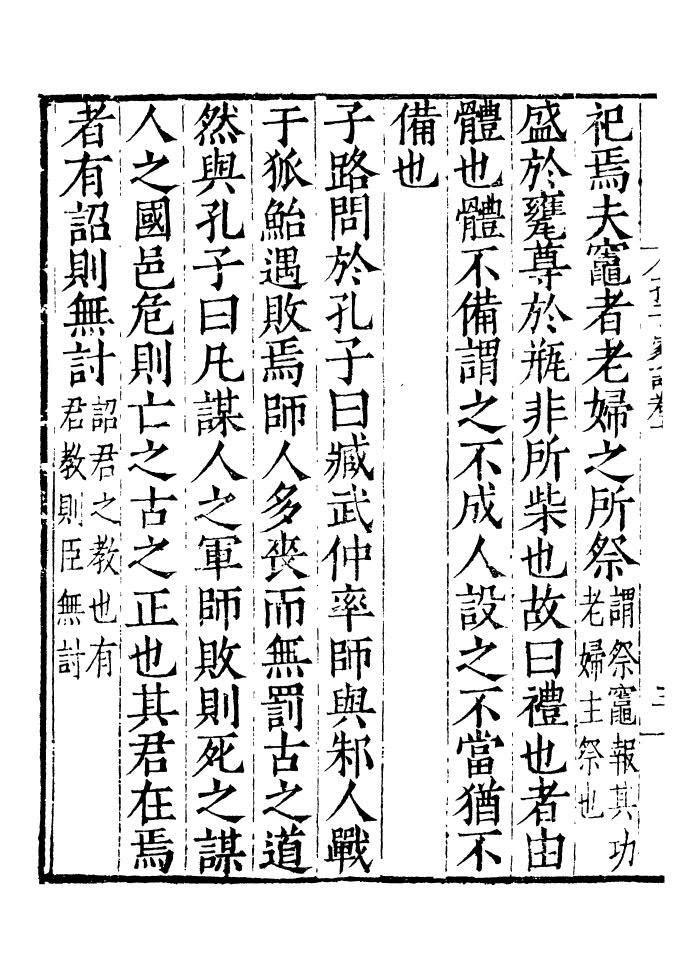 祀焉夫竈者老婦之所祭謂祭竈報其功老婦主祭也
盛於甕尊於瓶非所柴也故曰禮也者由
體也體不備謂之不成人設之不當猶不
備也
子路問於孔子曰臧武仲率師與邾人戰
于狐鮐遇敗焉師人多喪而無罰古之道
然與孔子曰凡謀人之軍師敗則死之謀
人之國邑危則亡之古之正也其君在焉
者有詔則無討詔君之教也有君教則臣無討